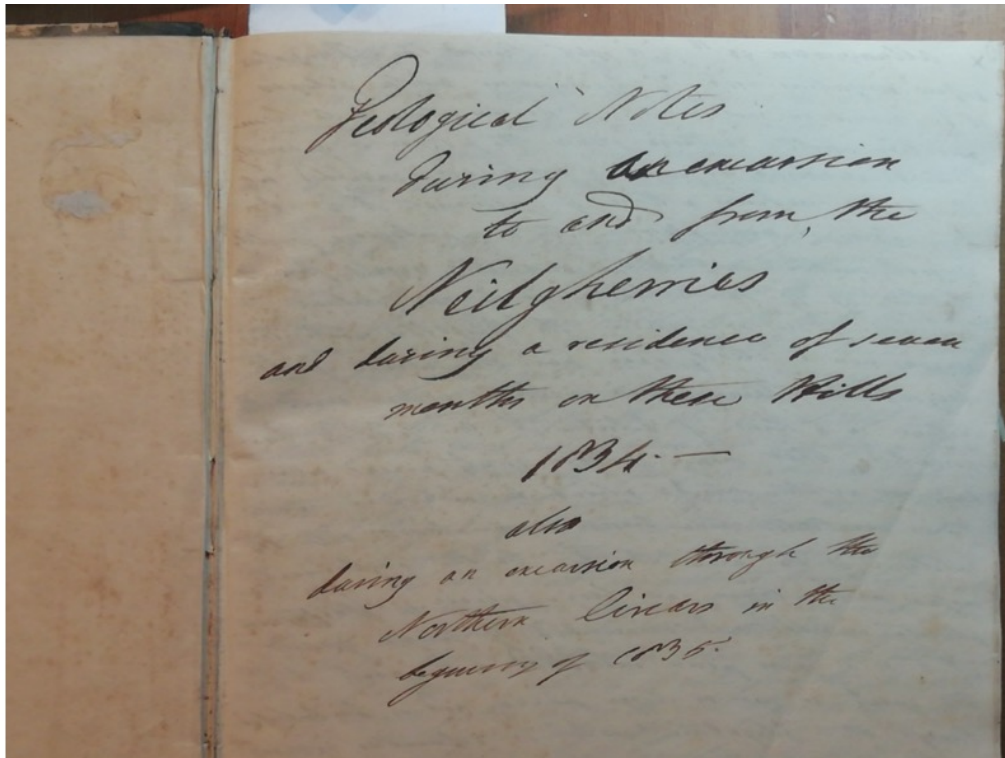 Geological Notes
during an excursion
to and from, the
Neilgherries
and during a residence of seven
months on these Hills
1834. —
also
during an excursion through the
Northern Circars in the
beginning of 1835.